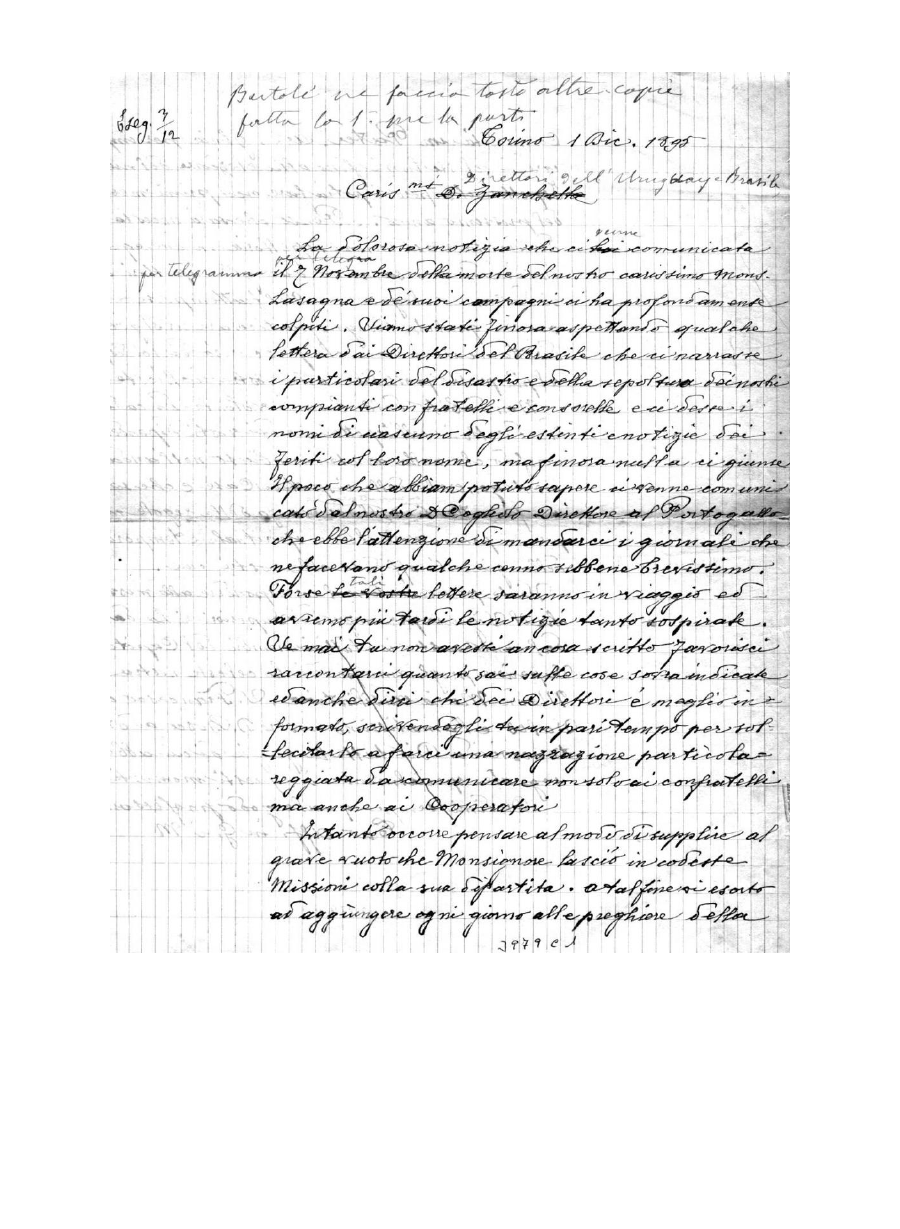 Bertolé ne faccia tosto altre copie
fatta la 1. pre la parti
Eseg. 3/12
Torino 1 Dic. 1895
Direttori dell'Uruguay e Brasile
Caris.mi D. Zanchetta
venne
La dolorosa notizia che ci comunicata
per telegra
per telegramma il 7 Novembre della morte del nostro carissimo Mons.
Lasagna e de' suoi compagni ci ha profondamente
colpiti. Siamo stati finora aspettando qualche
lettera dai Direttori del Brasile che ci narrasse
i particolari del disastro e della sepoltura dei nostri
compianti confratelli e consorelle e ci desse i
nomi di ciascuno degli estinti e notizie dei
feriti col loro nome, ma finora nulla ci giunse
Il poco che abbiam potuto sapere ci venne comuni
cato dal nostro D Cogliolo Direttore al Portogallo
che ebbe l'attenzione di mandarci i giornali che
ne facevano qualche cenno sebbene brevissimo.
tali
Forse le vostre lettere saranno in viaggio ed
avremo più tardi le notizie tanto sospirate.
Se mai tu non avesti ancora scritto favorisci
raccontarci quanto sai sulle cose sovra indicate
ed anche dirci chi dei Direttori é meglio in=
formato, scrivendogli tu in pari tempo per sol
=lecitarlo a farci una narrazione particola=
reggiata da comunicare non solo ai confratelli
ma anche ai Cooperatori
Intanto occorre pensare al modo di supplire al
grave vuoto che Monsignore lasciò in codeste
Missioni colla sua dipartita. A tal fine vi esorto
ad aggiungere ogni giorno alle preghiere della
3979 C 1